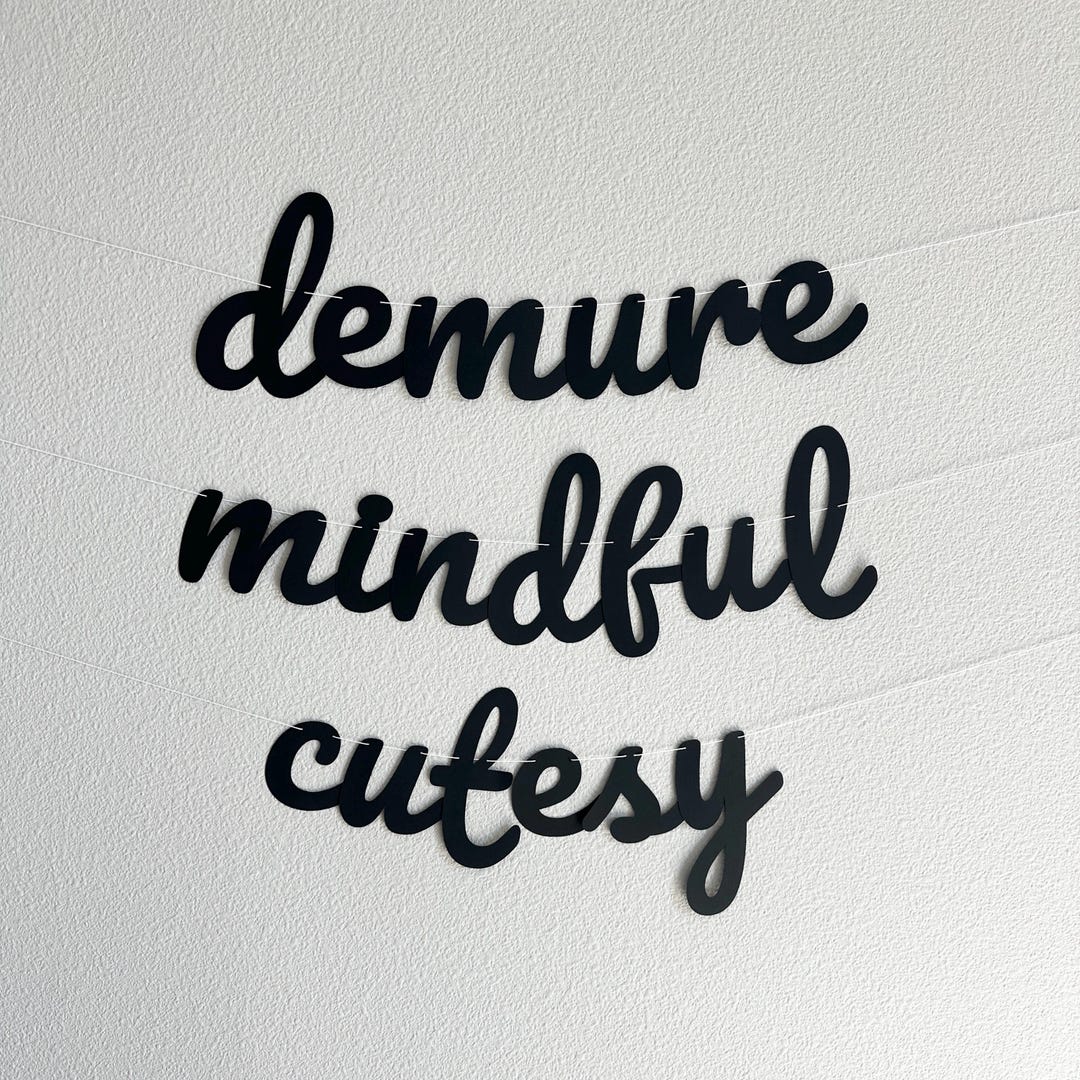 demure
mindful
cutesy